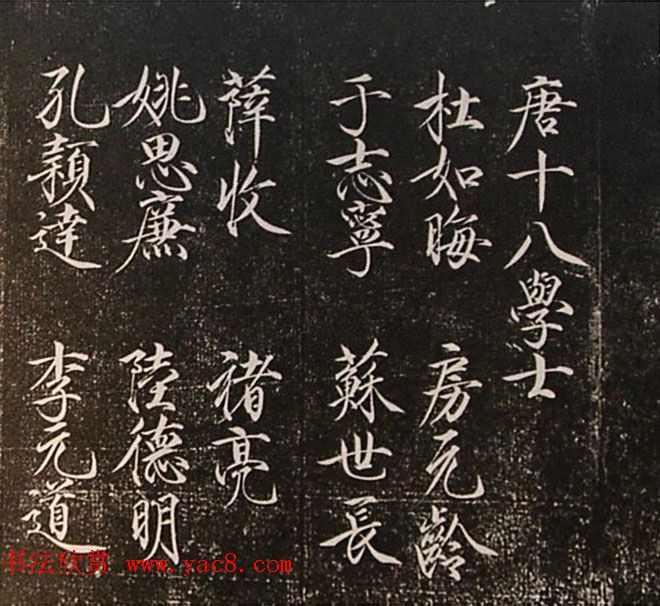 唐十八學士
杜如晦 房元齡
于志寧 蘇世長
薛收 褚亮
姚思廉 陸德明
孔穎達 李元道
书法欣赏 www.yac8.com